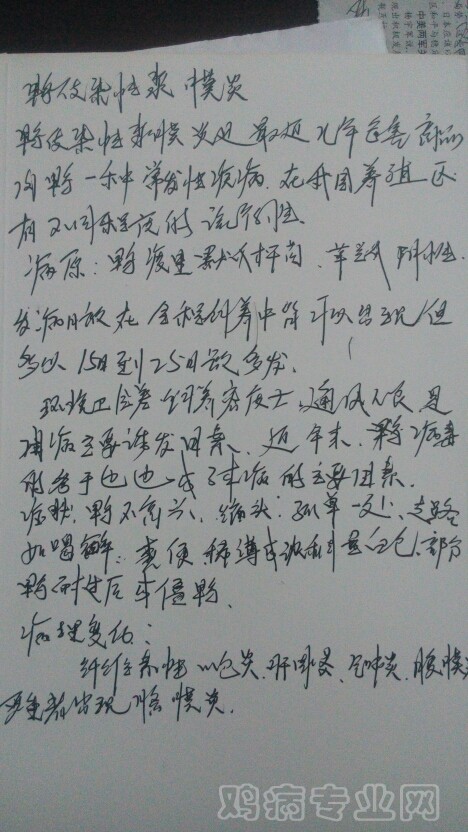 鸭传染性浆膜炎
鸭传染性浆膜炎是最近几年危害商品
肉鸭一种常发性疾病.在我国养殖区
有不同程度的流行性.
病原:鸭疫里默氏杆菌、革兰氏阴性.
发病日龄在全程饲养中皆可以出现但
多以15日到25日龄多发.
环境卫生差 饲养密度大,通风不良是
本病主要诱发因素.近年来.鸭病毒
性
症状:鸭不高兴、缩头、孤单一处、走路
如喝醉:粪便稀薄 绿白色、部分
鸭耐过后成僵鸭.
病理变化:
纤维素性心包炎.肝周炎.气囊炎.腹膜炎
严重者出现脑膜炎.
鸡病专业网